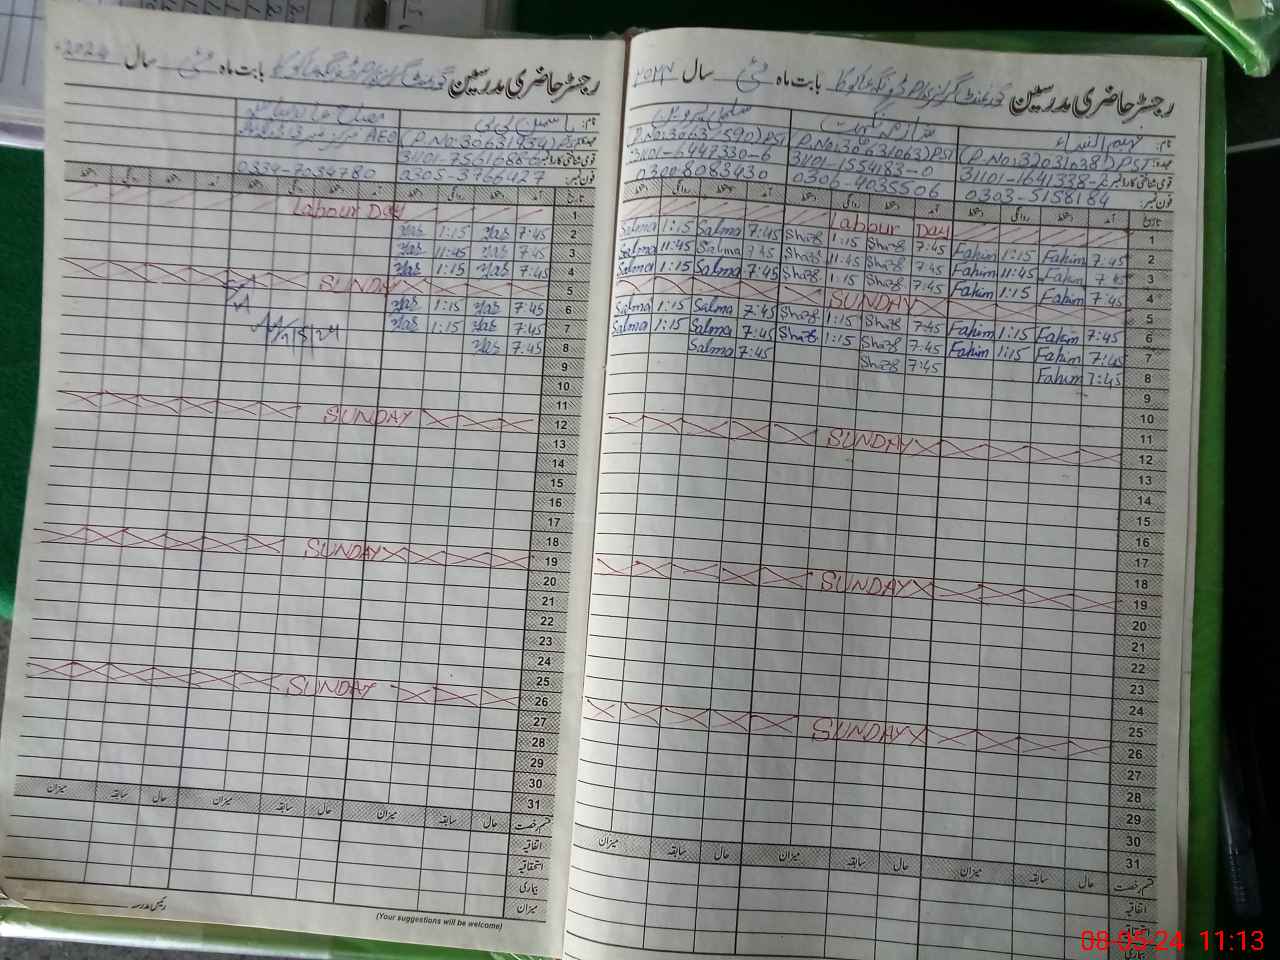 رجسٹر حاضری مدرسین گورنمنٹ گرلز P/S بابت ماہ مئی سال ۲۰۲۴
نام: فہیم النساء شازیہ سلمہ پروین
عہدہ: (P.No:32031038) PST (P.No:30631063) PST (P.No:30637590) PST
قومی شناختی کارڈ نمبر 31101-1641338-2 31101-1554183-0 31101-6447330-6
فون نمبر: 0303-5158184 0306-4035506 0300-8083430
تاریخ آمد دستخط روانگی دستخط آمد دستخط روانگی دستخط آمد دستخط روانگی دستخط
1 Labour Day
2 7:45 Fahim 1:15 Fahim 7:45 Shaz 1:15 Shaz 7:45 Salma 1:15 Salma
3 7:45 Fahim 11:45 Fahim 7:45 Shaz 11:45 Shaz 7:45 Salma 11:45 Salma
4 7:45 Fahim 1:15 Fahim 7:45 Shaz 1:15 Shaz 7:45 Salma 1:15 Salma
5 SUNDAY
6 7:45 Fahim 1:15 Fahim 7:45 Shaz 1:15 Shaz 7:45 Salma 1:15 Salma
7 7:45 Fahim 1:15 Fahim 7:45 Shaz 1:15 Shaz 7:45 Salma 1:15 Salma
8 7:45 Fahim 7:45 Shaz 7:45 Salma
9
10
11
12 SUNDAY
13
14
15
16
17
18
19 SUNDAY
20
21
22
23
24
25
26 SUNDAY
27
28
29
30
31
قسم رخصت حال سابقہ میزان حال سابقہ میزان حال سابقہ میزان
اتفاقیہ
استحقاقیہ
بیماری
رجسٹر حاضری مدرسین گورنمنٹ گرلز P/S بابت ماہ مئی سال 2024
نام: یاسمین بی بی
عہدہ: (P.No:30631934) AEO مرکز
قومی شناختی کارڈ نمبر 31101-7561686-0
فون نمبر: 0305-3766427 0334-7034780
تاریخ آمد دستخط روانگی دستخط آمد دستخط روانگی دستخط آمد دستخط روانگی دستخط
1 Labour Day
2 7:45 1:15
3 7:45 11:45
4 7:45 1:15
5 SUNDAY
6 7:45 1:15
7 7:45 1:15
8 7:45
9
10
11
12 SUNDAY
13
14
15
16
17
18
19 SUNDAY
20
21
22
23
24
25
26 SUNDAY
27
28
29
30
31
قسم رخصت حال سابقہ میزان حال سابقہ میزان حال سابقہ میزان
اتفاقیہ
استحقاقیہ
بیماری
میزان
رئیس مدرسہ
(Your suggestions will be welcome)
08-05-24 11:13